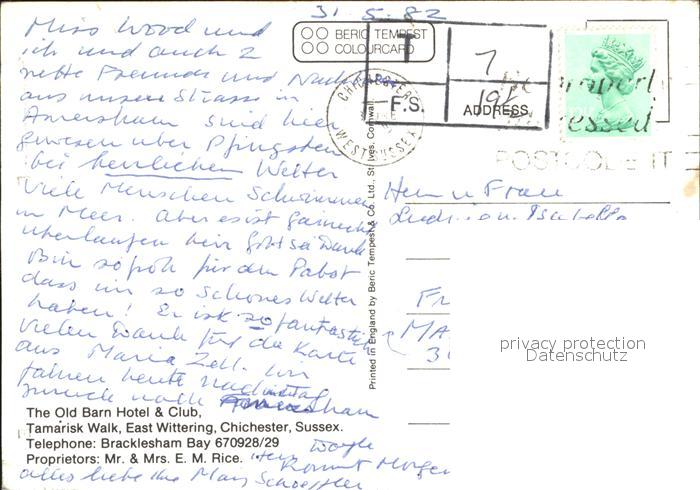 31.5.82
Miss Wood und
ich und auch 2
nette Freunde und
aus unsere Strasse in
Amersham sind hier
gewesen über Pfingsten
bei herrlichen Wetter
Viele Menschen Schwimmen
in Meer. Aber es ist
überlaufen hier Gott sei Dank
Bin so froh für den Pabst
dass wir so schönes Wetter
haben! Er ist so fantastisch
Vielen Dank für die Karte
aus Maria Zell. Wir
fahren heute nachmittag
zurück nach
Herr Doyle
kommt Morgen
alles liebe Ihre Mary
BERIC TEMPEST
COLOURCARD
T
7
F.S.
19p
ADDRESS
CHICHESTER
WEST SUSSEX
POSTCODE IT
Herr u Frau
Fr
MA
3
privacy protection
Datenschutz
Printed in England by Beric Tempest & Co. Ltd., St. Ives, Cornwall.
The Old Barn Hotel & Club,
Tamarisk Walk, East Wittering, Chichester, Sussex.
Telephone: Bracklesham Bay 670928/29
Proprietors: Mr. & Mrs. E. M. Rice.